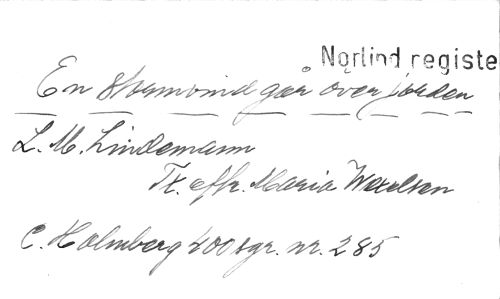 Norlind registe
En stormvind går över jorden
L. M. Lindemann
Tx. efter. Maria Wexelsen
C. Holmberg 200 sgr. nr. 285